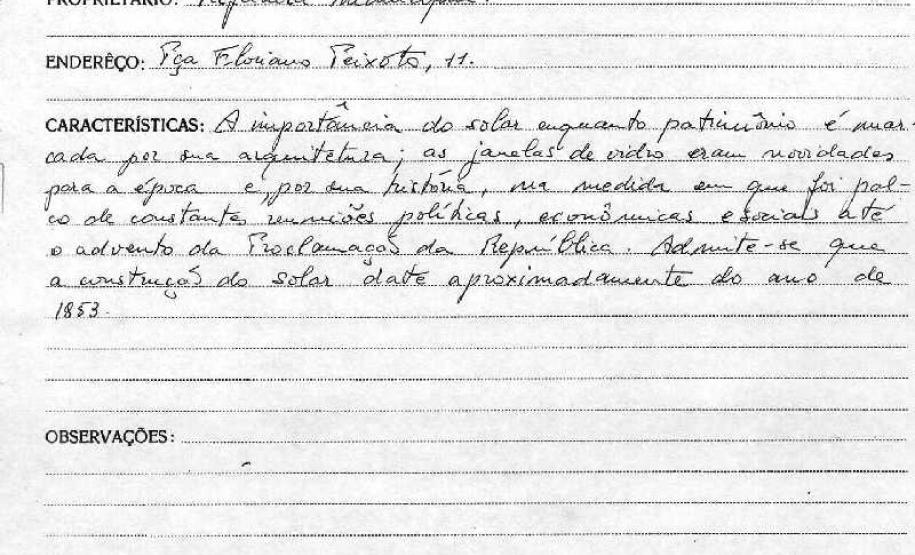 PROPRIETÁRIO:
ENDERÊÇO: Pça Floriano Peixoto, 11.
CARACTERÍSTICAS: A importância do solar enquanto patrimônio é mar-
cada por sua arquitetura; as janelas de vidro eram novidades
para a época e, por sua história, na medida em que foi pal-
co de constante reuniões políticas, econômicas e sociais até
o advento da Proclamação da República. Admite-se que
a construção do solar date aproximadamente do ano de
1853.
OBSERVAÇÕES: